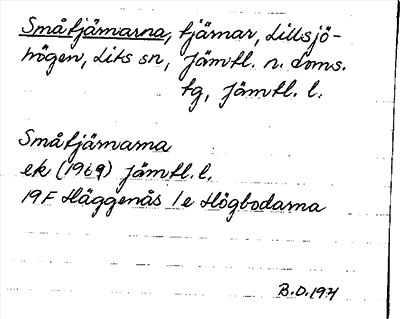 Småtjärnarna, tjärnar, Lillsjö-
högen, Lits sn, Jämtl. n. doms.
tg, Jämtl. l.
Småtjärnarna
ek (1969) Jämtl. l.
19F Häggenås 1e Högbodarna
B.D. 1971